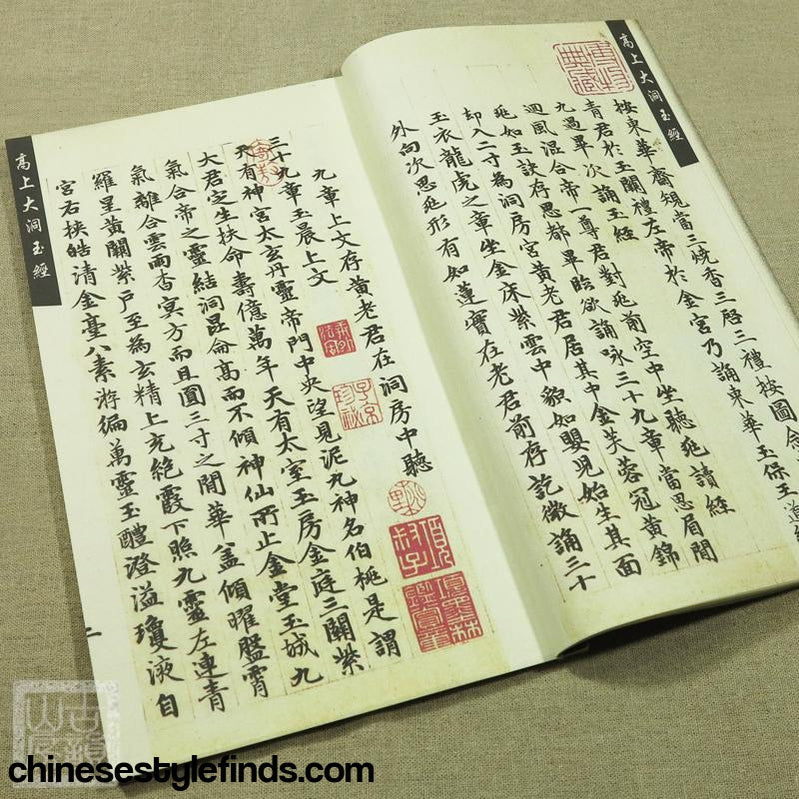 高上大洞玉經
按東華齋規當三燒香三啓三禮按圖念
青君於玉關禮左帝於金宮乃誦東華玉保王道經
九過畢次誦玉經
迴風混合帝一尊君對兆前空中坐聽兆讀經
兆如玉訣存思都畢臨欲誦詠三十九章當思眉間
却入二寸為洞房宮黃老君居其中金芙蓉冠黃錦
玉衣龍虎之章坐金床紫雲中貌如嬰兒始生其面
外向次思兆形有如蓮實在老君前存訖微誦三十
九章上文存黃老君在洞房中聽
三十九章玉晨上文
天有神宮太玄丹靈帝門中央望見泥九神名伯桃是謂
大君定生扶命壽億萬年天有太室玉房金庭三關紫
氣合帝之靈結洞昆侖高而不傾神仙所止金堂玉城九
氣離合雲雨杳冥方而且圓三寸之間華盖傾曜盤霄
羅星黃闕紫戶至為玄精上充絕霞下照九靈左連青
宮右挾皓清金臺八素游編萬靈玉醴澄溢瓊液自
高上大洞玉經
二
chinesestylefinds.com